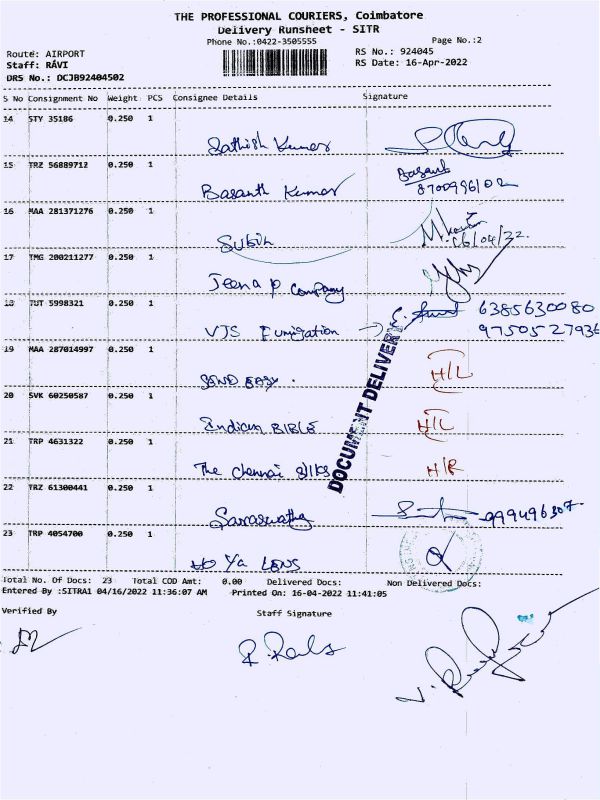 THE PROFESSIONAL COURIERS, Coimbatore
Delivery Runsheet - SITR
Phone No.:0422-3505555
Page No.:2
Route: AIRPORT
RS No.: 924045
Staff: RAVI
RS Date: 16-Apr-2022
DRS No.: DCJB92404502
S No Consignment No Weight PCS Consignee Details Signature
14 STY 35186 0.250 1
Sathish Kumar
15 TRZ 56889712 0.250 1
Basanth
Basanth Kumar 8700996102
16 MAA 281371276 0.250 1
Subin 16/04/22.
17 TMG 200211277 0.250 1
Jeena p Company
18 TUT 5998321 0.250 1
6385630080
VJS Fumigation 9750527936
19 MAA 287014997 0.250 1
SEND EASY. H/L
20 SVK 60250587 0.250 1
Indian BIBLE H/L
21 TRP 4631322 0.250 1
The Chennai Silks H/R
DOCUMENT DELIVERY
22 TRZ 61300441 0.250 1
Saraswatha
23 TRP 4054700 0.250 1
HO Ya LENS
Total No. Of Docs: 23 Total COD Amt: 0.00 Delivered Docs: Non Delivered Docs:
Entered By :SITRA1 04/16/2022 11:36:07 AM Printed On: 16-04-2022 11:41:05
Verified By Staff Signature